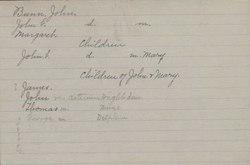 Bunn John.
John P. d. m.
Margaret.
Children
John P. d. m. Mary
Children of John & Mary.
James.
John m.
Thomas m.
m. Delphia